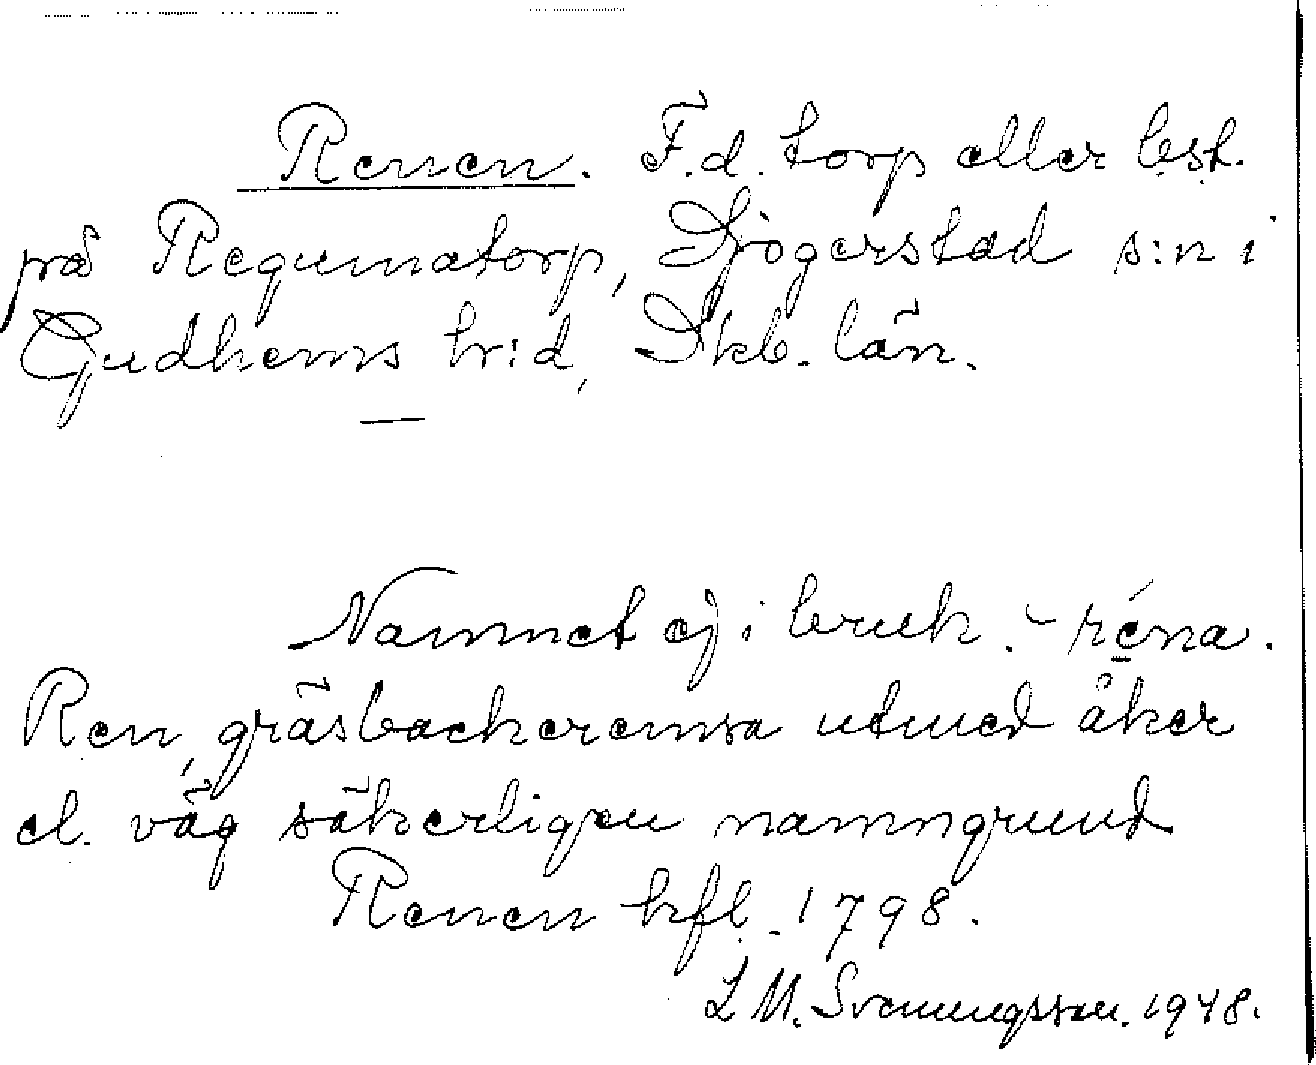 Renen. F.d. torp eller lgst.
på Regumatorp, Sjögerstad s:n i
Gudhems hr:d, Skb. län.
Namnet ej i bruk. - réna.
Ren, gräsbackeremsa utmed åker
el. väg säkerligen namngrund
Renen hfl. 1798.
L M. Svenungsson. 1948.